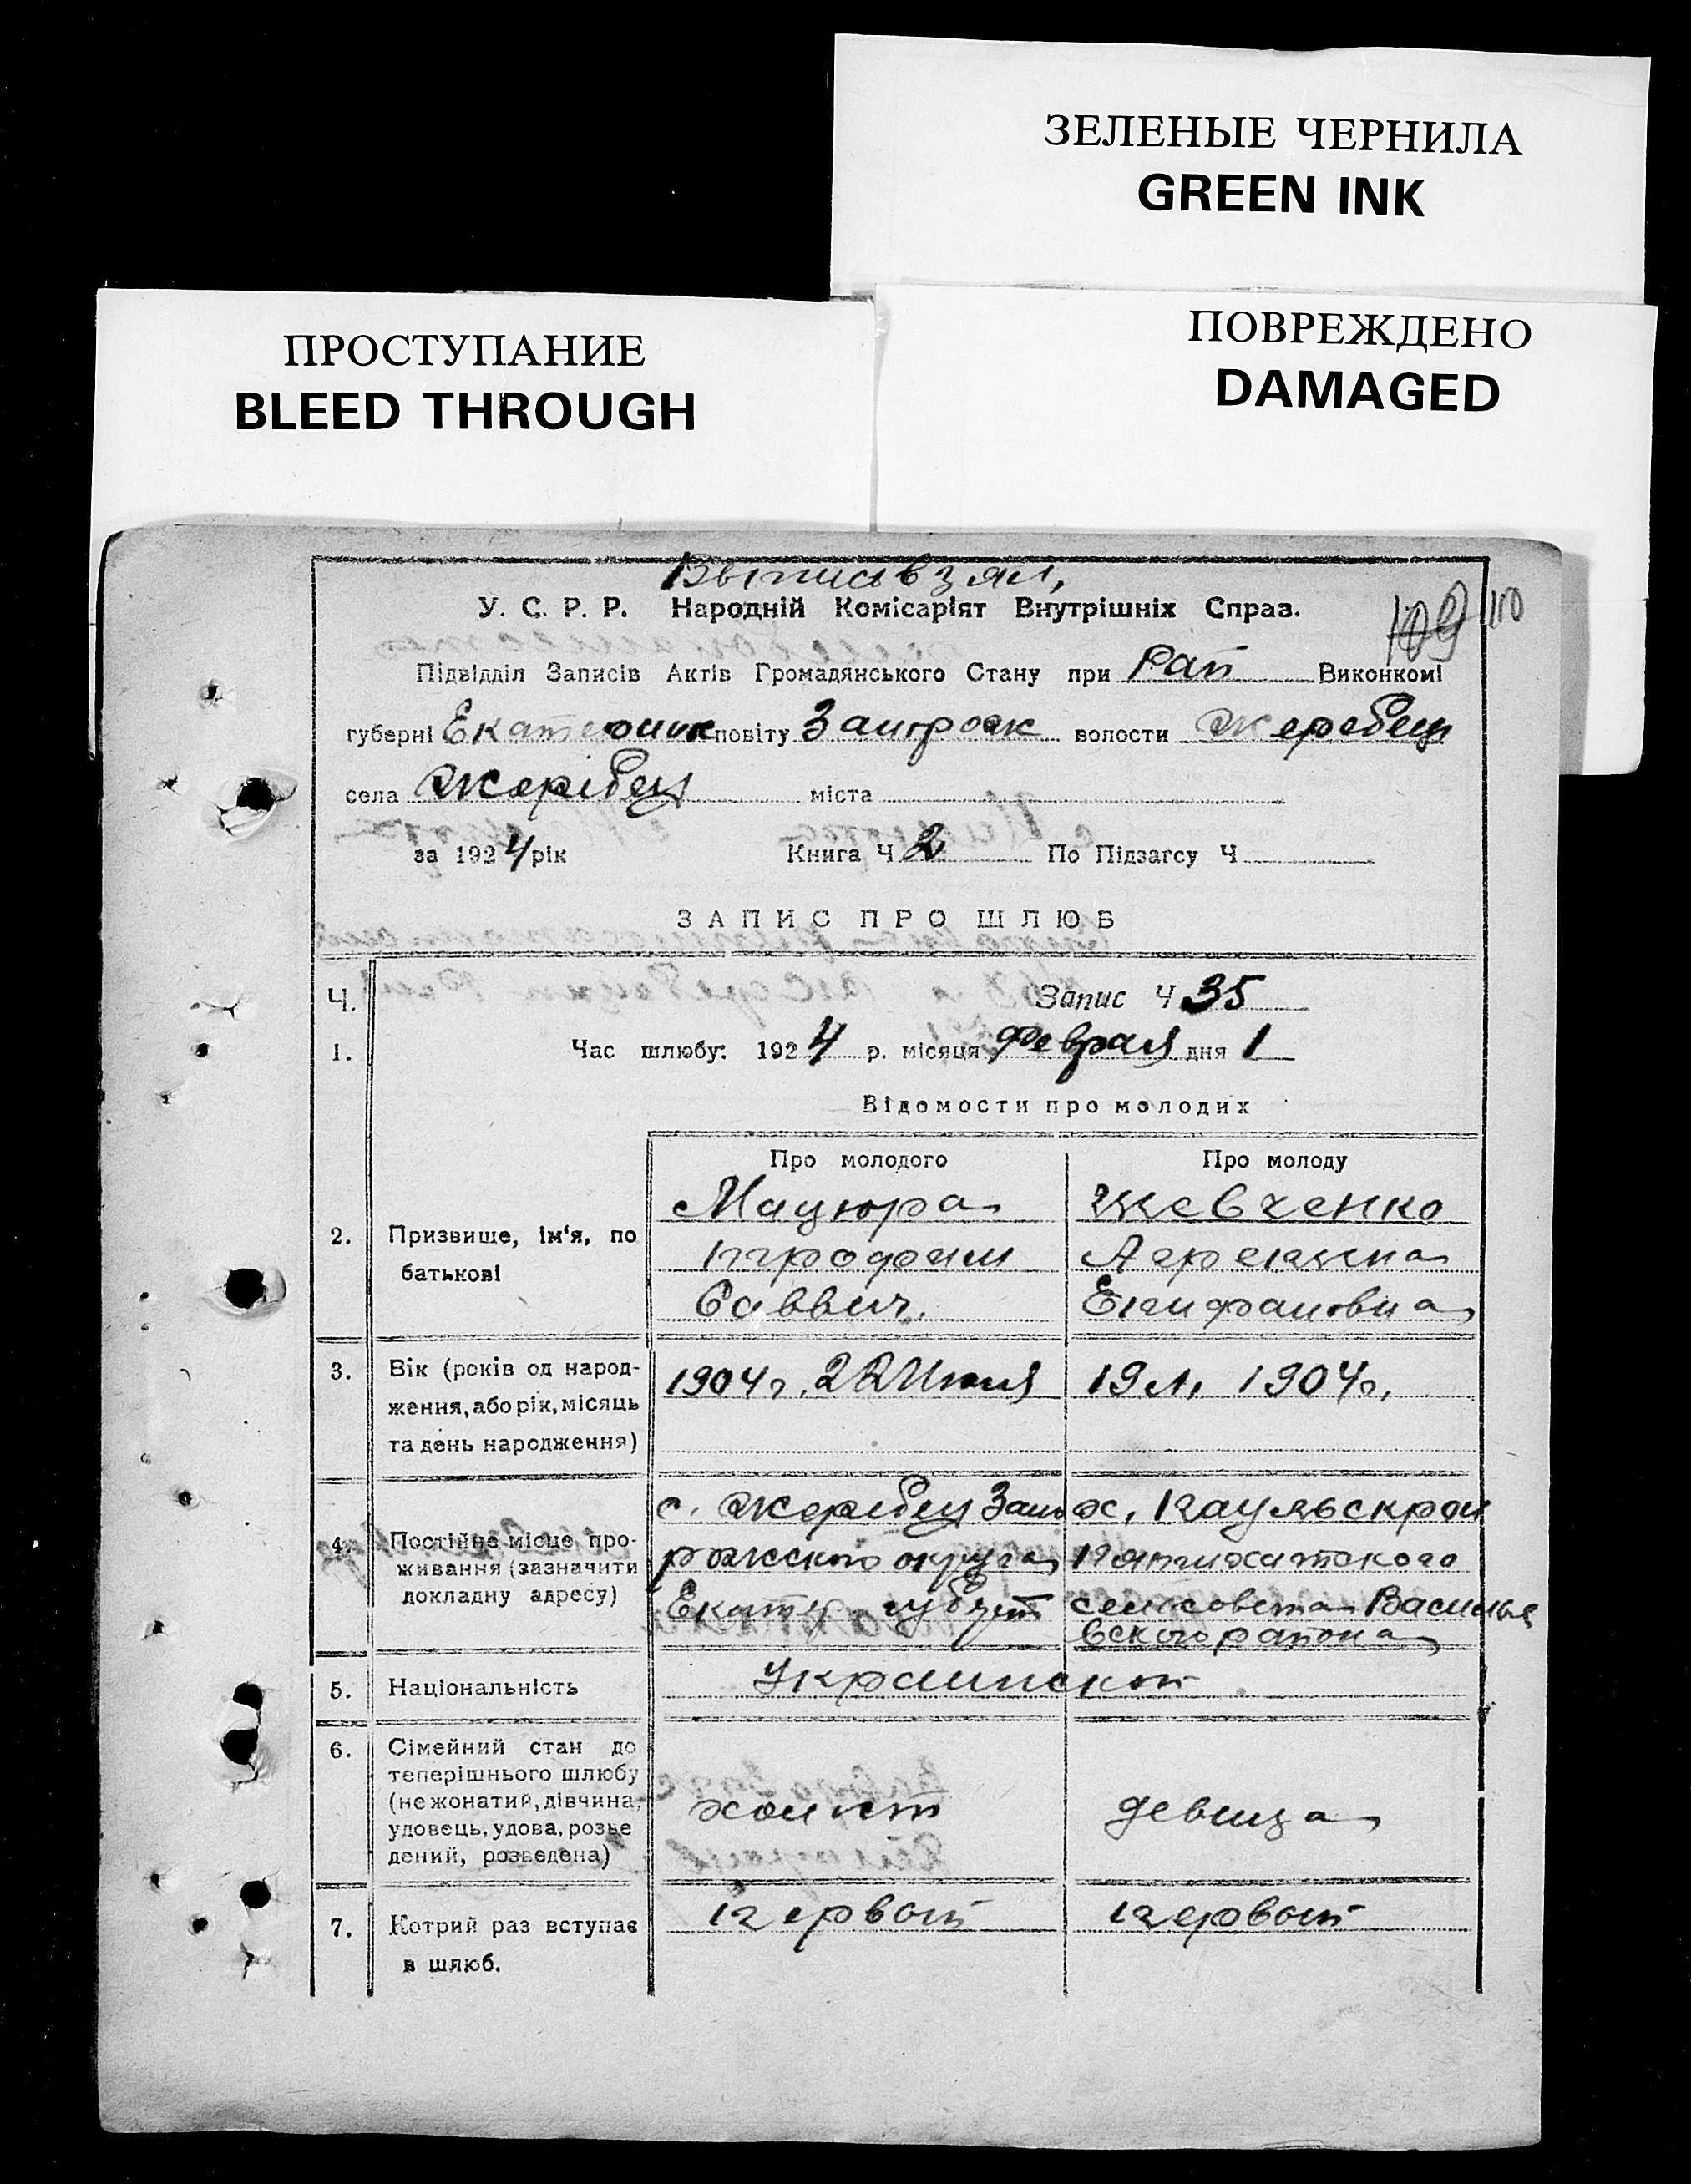 ЗЕЛЕНЫЕ ЧЕРНИЛА
GREEN INK
ПРОСТУПАНИЕ
BLEED THROUGH
ПОВРЕЖДЕНО
DAMAGED
Выпись взял,
У. С. Р. Р. Народній Комісаріят Внутрішніх Спраз.
109 110
Підвідділ Записів Актів Громадянського Стану при Рай Виконкомі
губерні Екатерин повіту Запорож волости Жеребец
села Жерібец міста
за 1924 рік Книга Ч 2 По Підзагсу Ч
ЗАПИС ПРО ШЛЮБ
Ч. Запис Ч 35
1. Час шлюбу: 1924 р. місяця Февраля дня 1
Відомости про молодих
Про молодого Про молоду
2. Призвище, ім'я, по батькові
Мацюра
Саввич.
Шевченко
Епифановна
3. Вік (років од народ-
ження, або рік, місяць
та день народження)
1904 г. 22 Июля
19 л. 1904 г.
4. Постійне місце про-
живання (зазначити
докладну адресу)
с. Жеребец Запо
рожского округа
Екатер губерн
х.
сельсовета Василье
вского района
5. Національність
Украинской
6. Сімейний стан до
теперішнього шлюбу
(нежонатий, дівчина,
удовець, удова, розве
дений, розведена)
холост
девица
7. Котрий раз вступає
в шлюб.
первый
первый